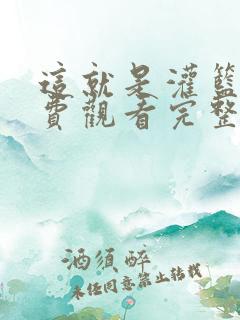 這就是灌籃
費觀看完整
酒須醉
未经同意禁止转载